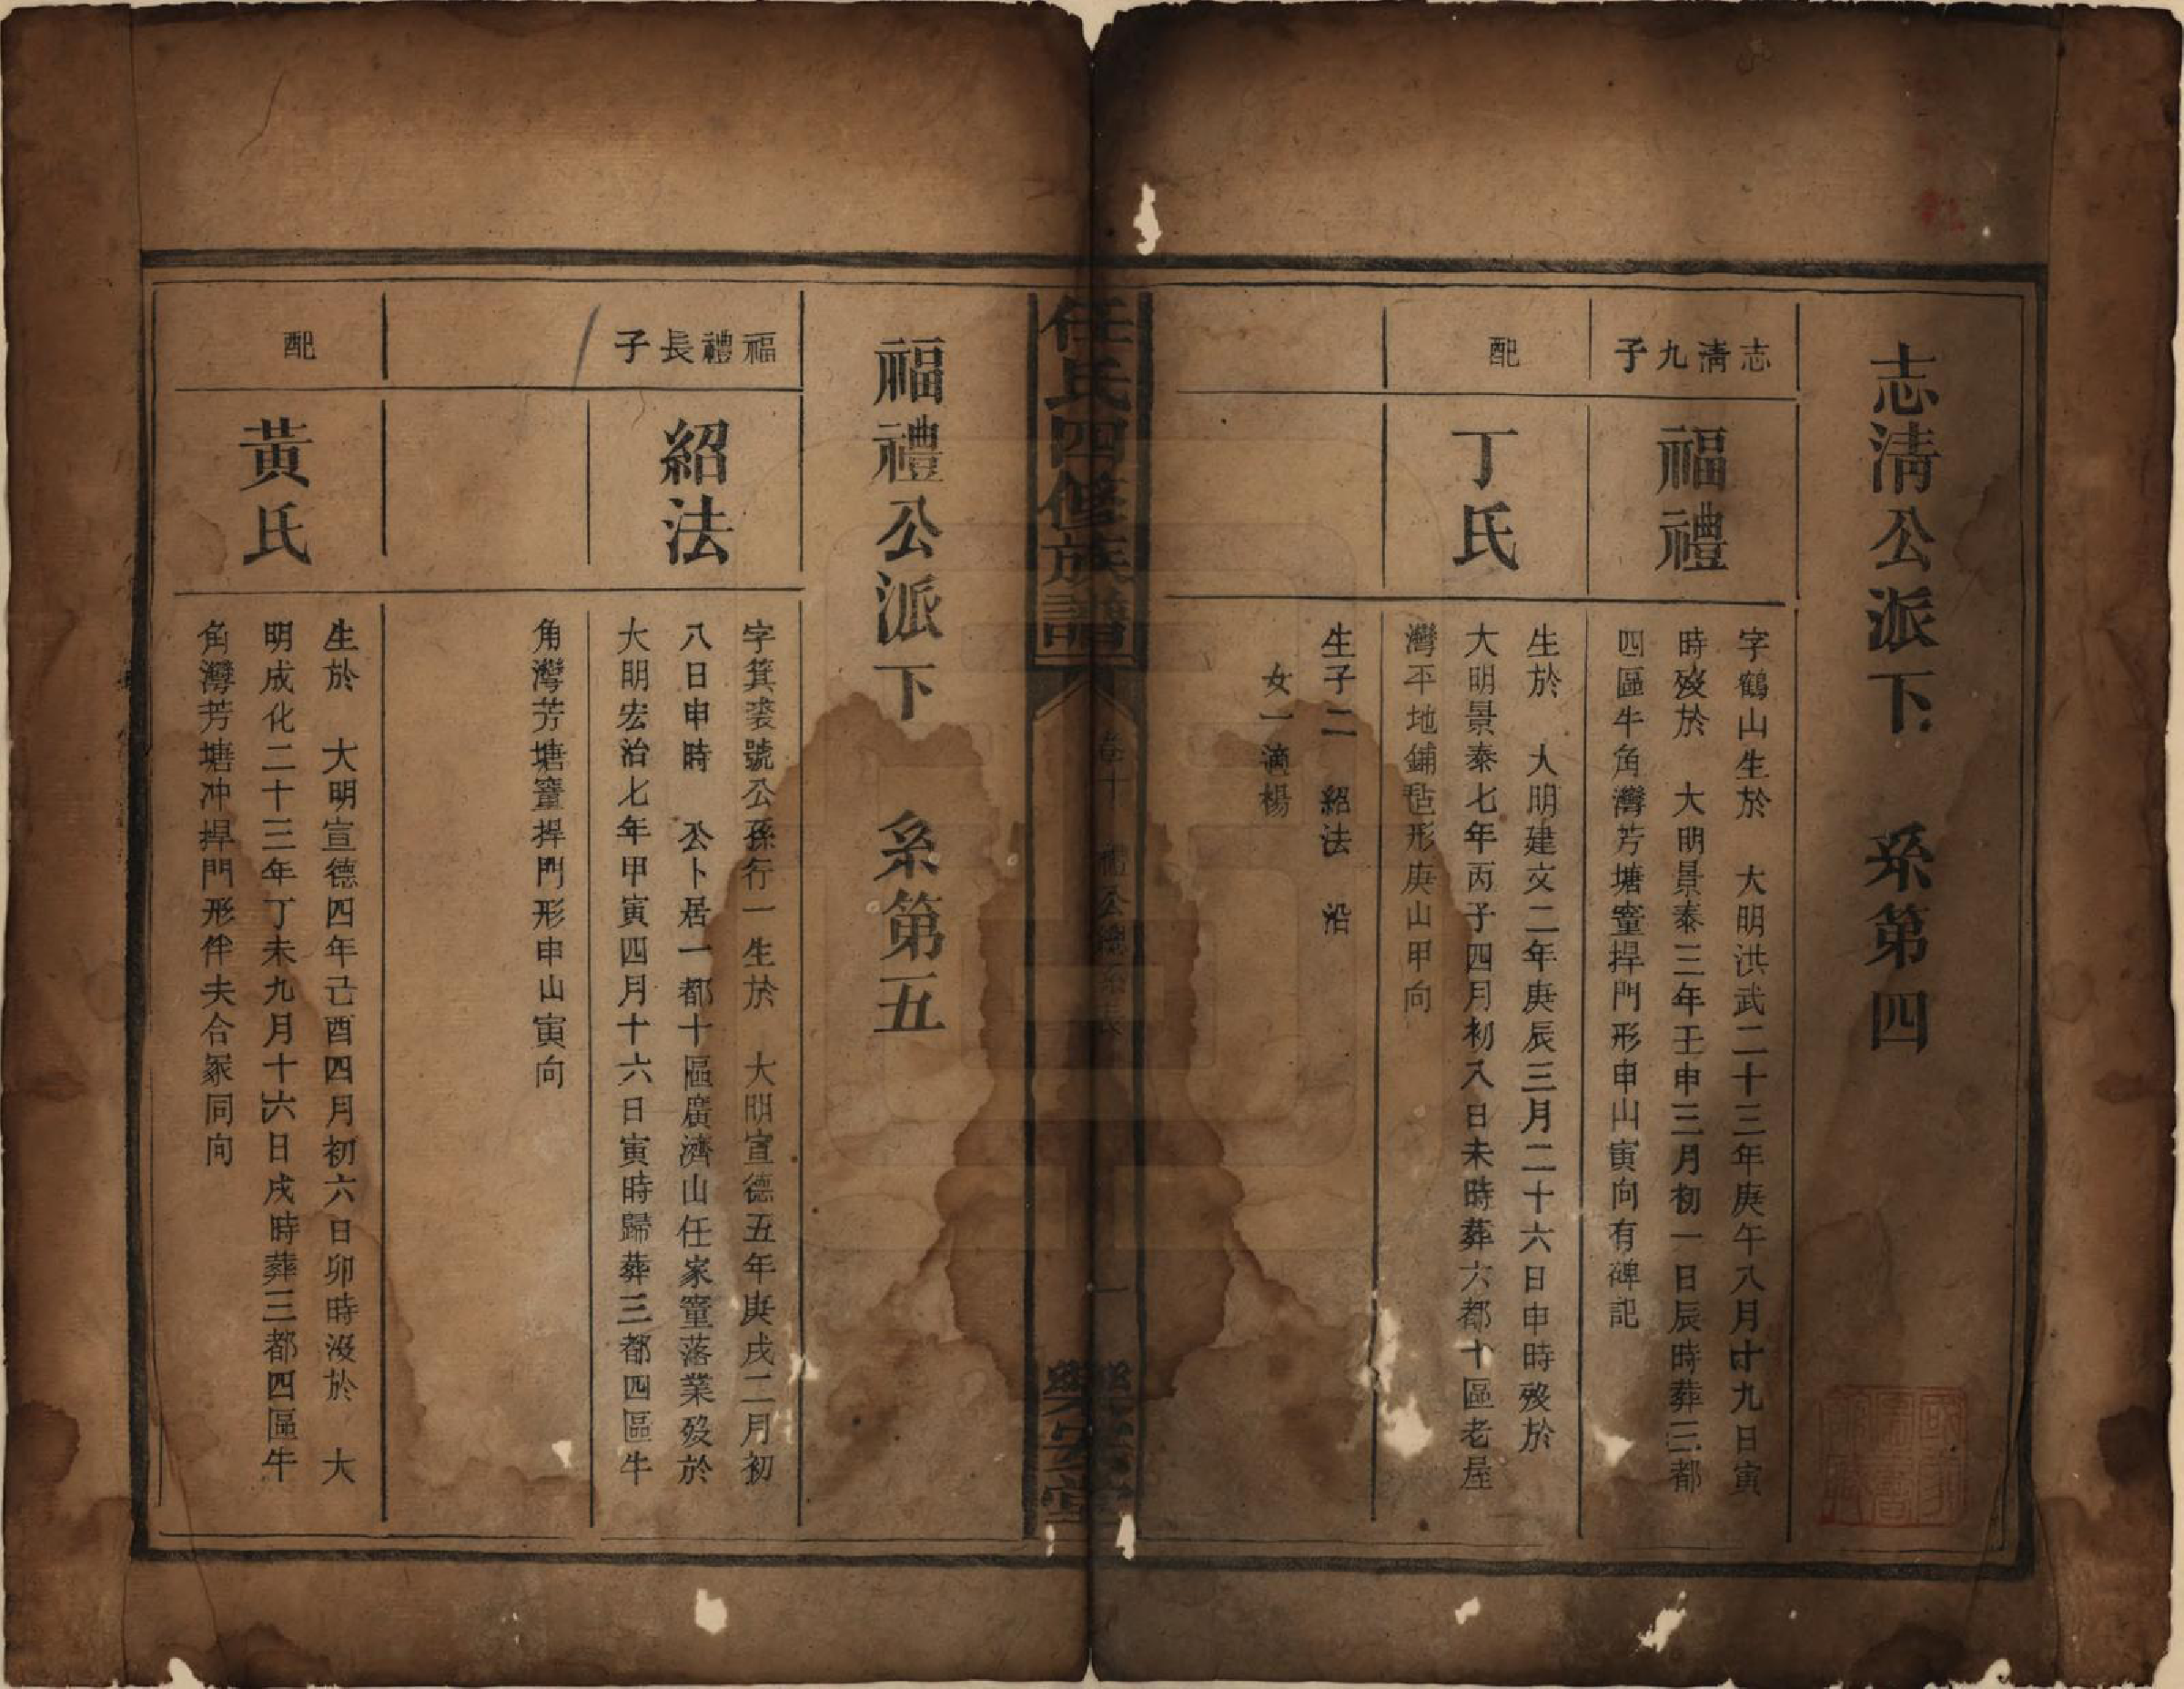 志淸公派下　系第四
志淸九子
福禮
字鶴山生於　大明洪武二十三年庚午八月十九日寅
時歿於　大明景泰三年壬申三月初一日辰時葬三都
四區牛角灣芳塘窰捍門形申山寅向有碑記
配
丁氏
生於　大明建文二年庚辰三月二十六日申時歿於
大明景泰七年丙子四月初八日未時葬六都十區老屋
灣平地鋪毡形庚山甲向
生子二　紹法　沿
女一適楊
任氏四修族譜
卷十
禮公總系
一
樂安堂
福禮公派下　系第五
福禮長子
紹法
字箕裘號公孫行一生於　大明宣德五年庚戌二月初
八日申時　公卜居一都十區廣濟山任家窰落業歿於
大明宏治七年甲寅四月十六日寅時歸葬三都四區牛
角灣芳塘窰捍門形申山寅向
配
黃氏
生於　大明宣德四年己酉四月初六日卯時沒於　大
明成化二十三年丁未九月十六日戌時葬三都四區牛
角灣芳塘冲捍門形伴夫合冢同向